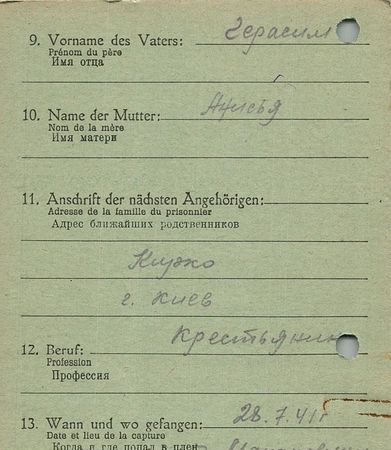 9. Vorname des Vaters: Герасим
Prénom du père
Имя отца
10. Name der Mutter: Анисья
Nom de la mère
Имя матери
11. Anschrift der nächsten Angehörigen:
Adresse de la famille du prisonnier
Адрес ближайших родственников
г. Киев
12. Beruf: Крестьянин
Profession
Профессия
13. Wann und wo gefangen: 28.7.41г
Date et lieu de la capture
Когда и где попал в плен